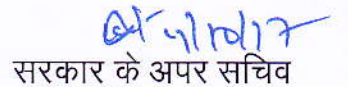 4/10/17
सरकार के अपर सचिव